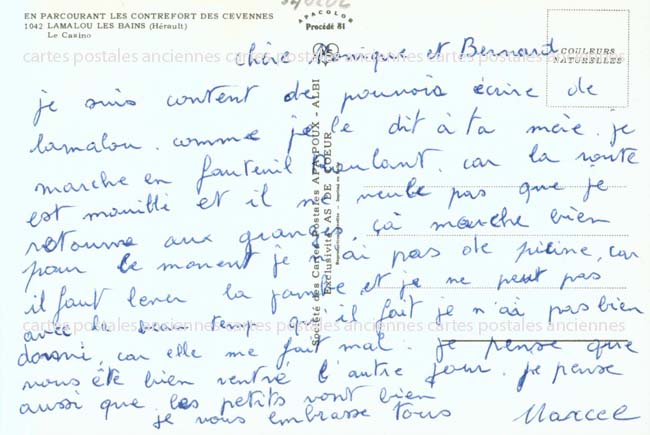 EN PARCOURANT LES CONTREFORT DES CEVENNES
1042 LAMALOU LES BAINS (Hérault)
Le Casino
APACOLOR
Procédé 81
COULEURS
NATURELLES
Société des Cartes Postales APA-POUX - ALBI
Exclusivité AS DE COEUR
cartes postales anciennes cartes postales anciennes cartes postales anciennes
chère Monique et Bernard
je suis content de pouvois écrire de
lamalou. comme je le dit à ta mère. je
marche en fauteuil roulant. car la route
est mouillé et il ne veule pas que je
retourne aux grandes, çà marche bien
pour le moment je n'ai pas de picine, car
il faut lever la jambe et je ne peut pas
avec le temp qu'il fait je n'ai pas bien
dormi, car elle me fait mal. je pense que
vous été bien rentré l'autre jour. je pense
aussi que les petits vont bien
je vous embrasse tous Marcel
cartes postales anciennes cartes postales anciennes cartes postales anciennes